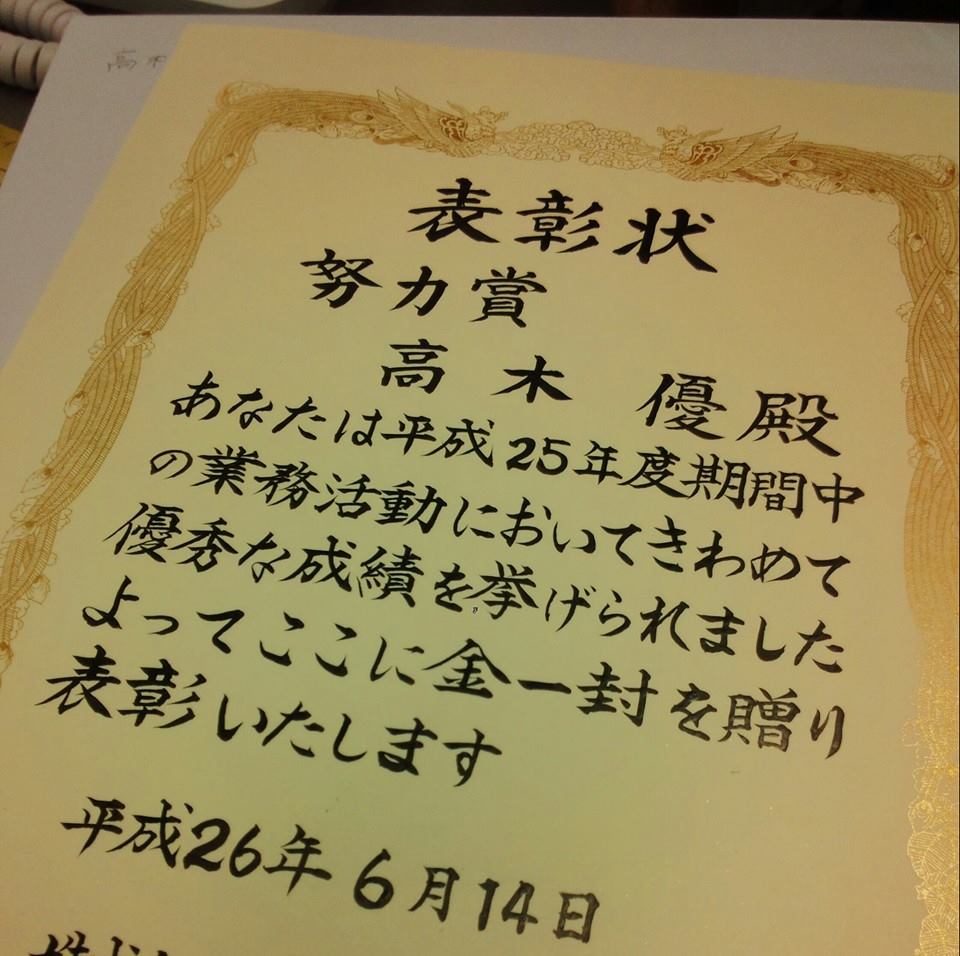 高木
表彰状
努力賞
高木 優殿
あなたは平成25年度期間中
の業務活動においてきわめて
優秀な成績を挙げられました
よってここに金一封を贈り
表彰いたします
平成26年6月14日
株式